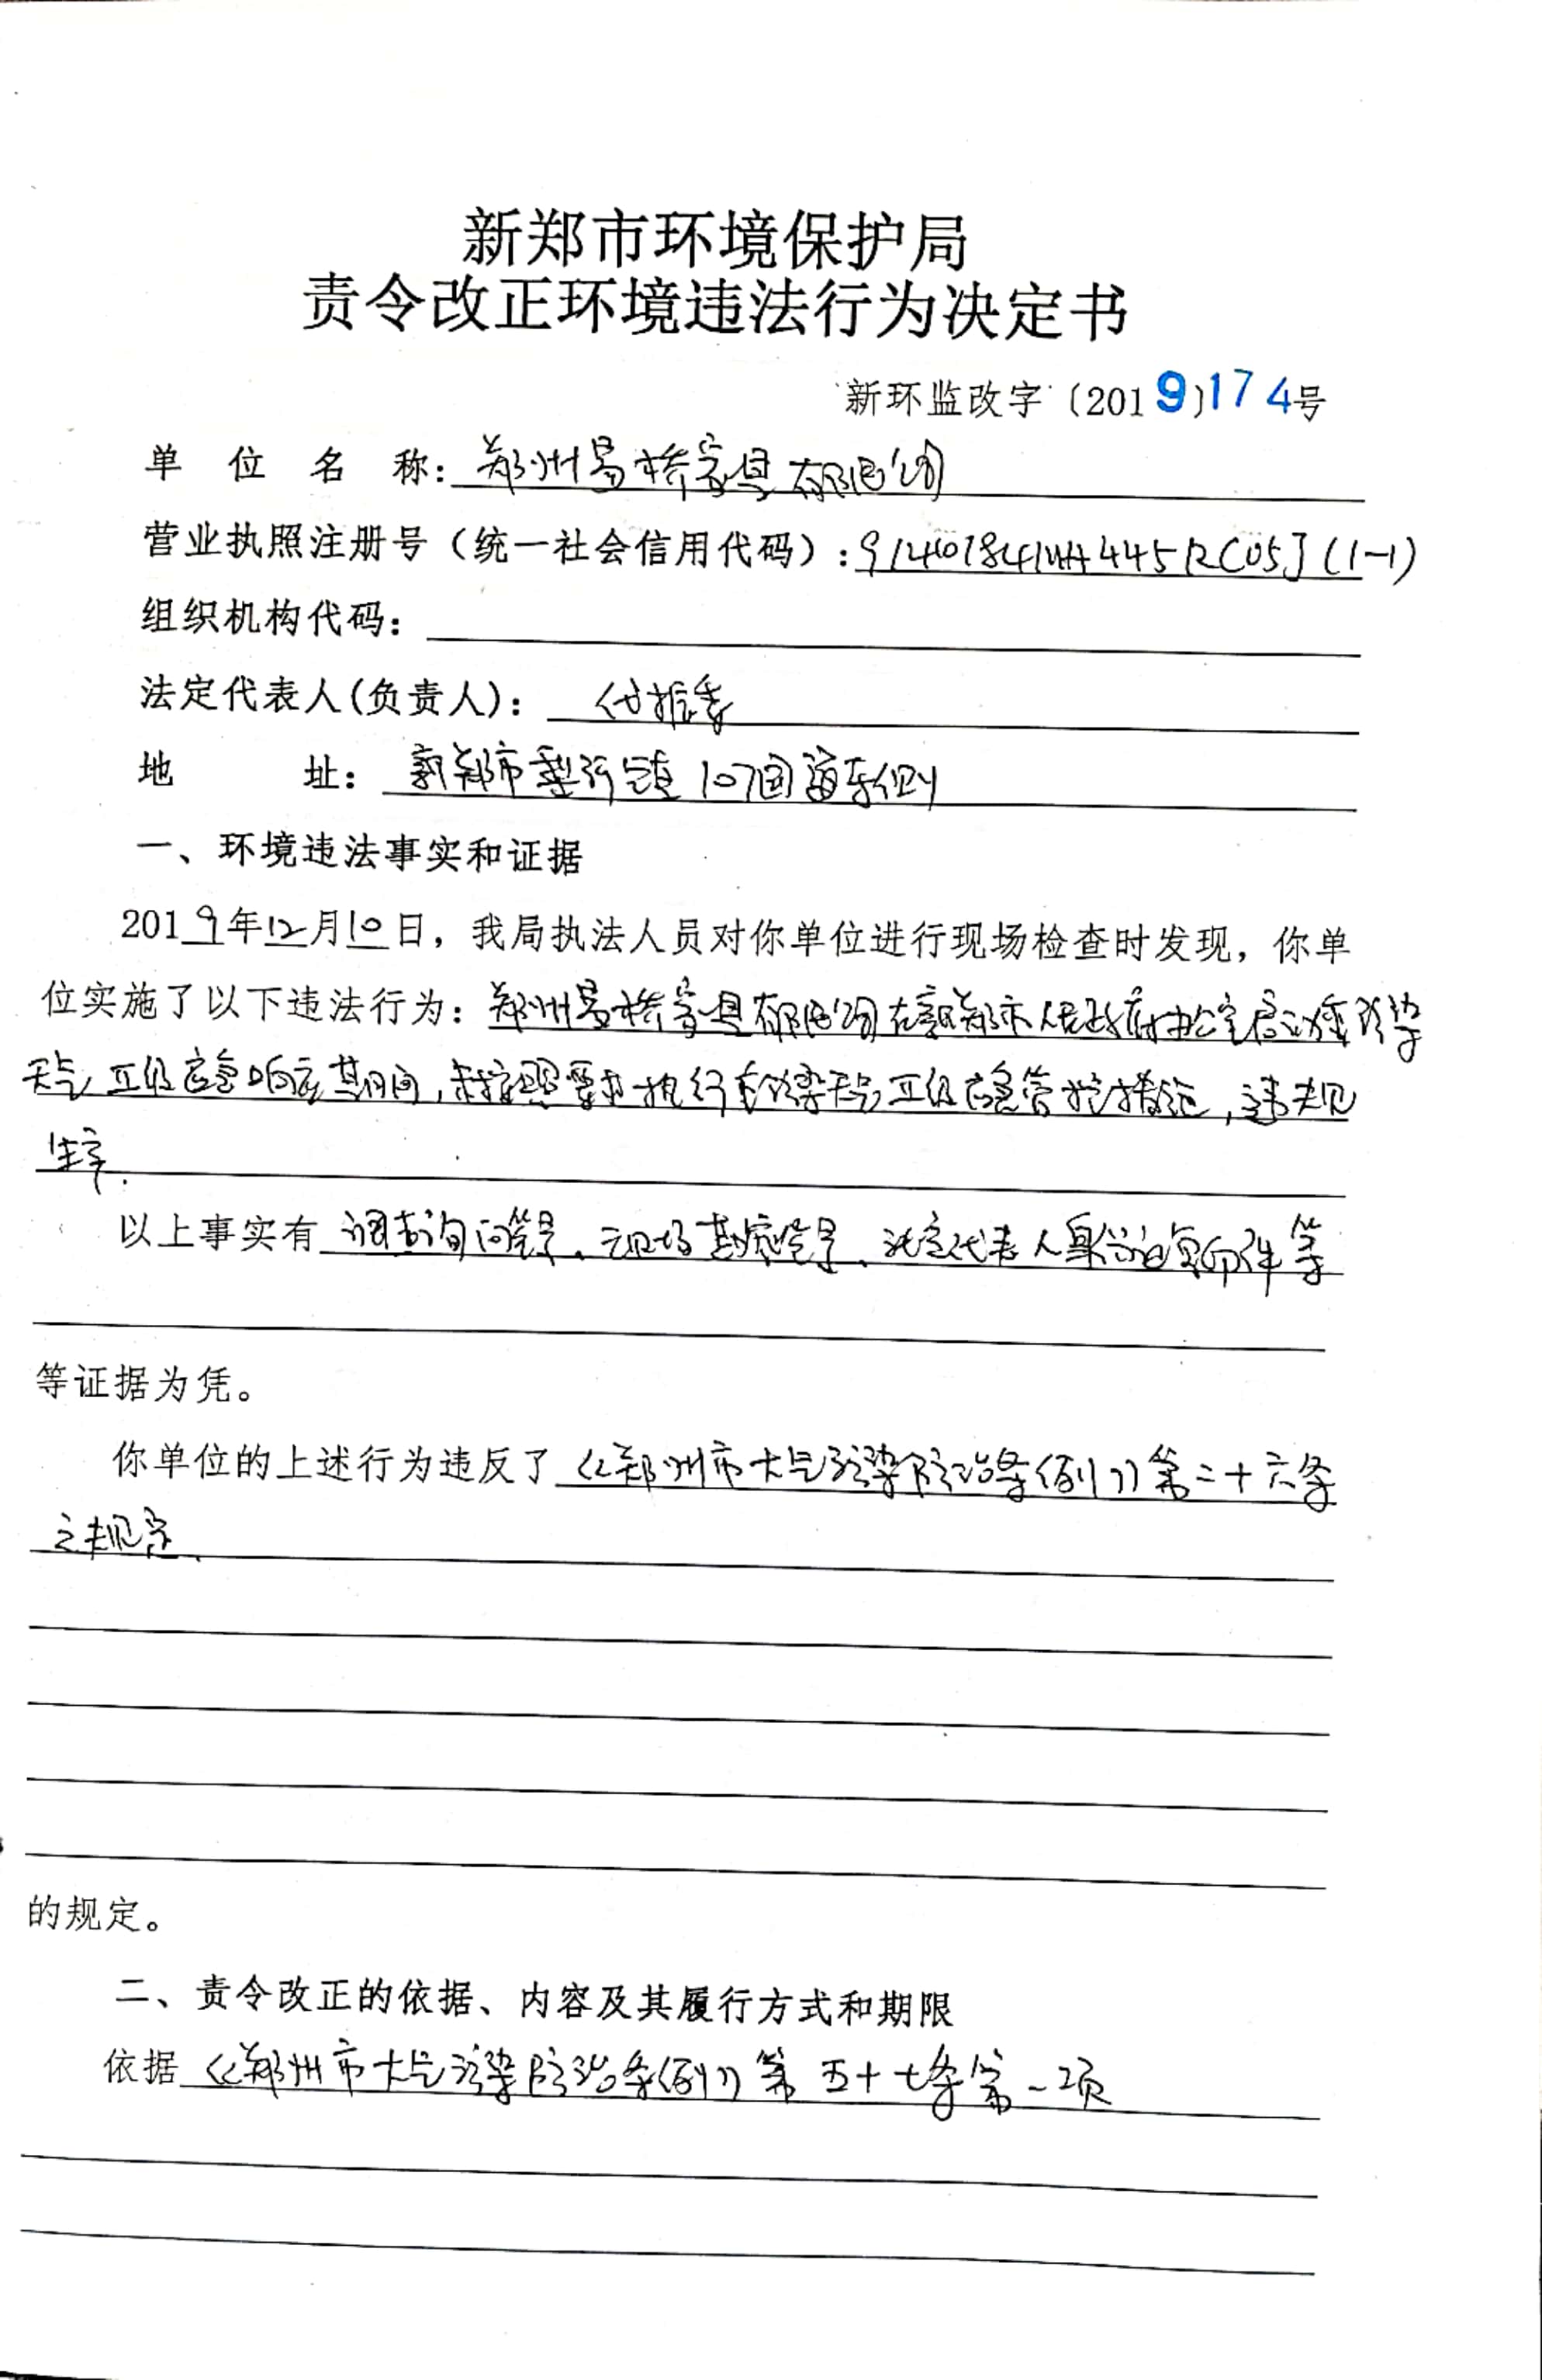 新郑市环境保护局
责令改正环境违法行为决定书
新环监改字〔2019〕174号
单位名称：郑州易桥家具有限公司
营业执照注册号（统一社会信用代码）：91410184MA445RC05J(1-1)
组织机构代码：
法定代表人(负责人)：付振委
地址：新郑市梨河镇107国道东侧
一、环境违法事实和证据
2019年12月10日，我局执法人员对你单位进行现场检查时发现，你单
位实施了以下违法行为：郑州易桥家具有限公司在新郑市人民政府办公室启动重污染
天气Ⅱ级应急响应期间，未按照要求执行重污染天气Ⅱ级应急管控措施，违规
生产.
以上事实有调查询问笔录、现场勘察笔录、法定代表人身份证复印件等
等证据为凭。
你单位的上述行为违反了《郑州市大气污染防治条例》第二十六条
之规定.
的规定。
二、责令改正的依据、内容及其履行方式和期限
依据《郑州市大气污染防治条例》第五十七条第一项